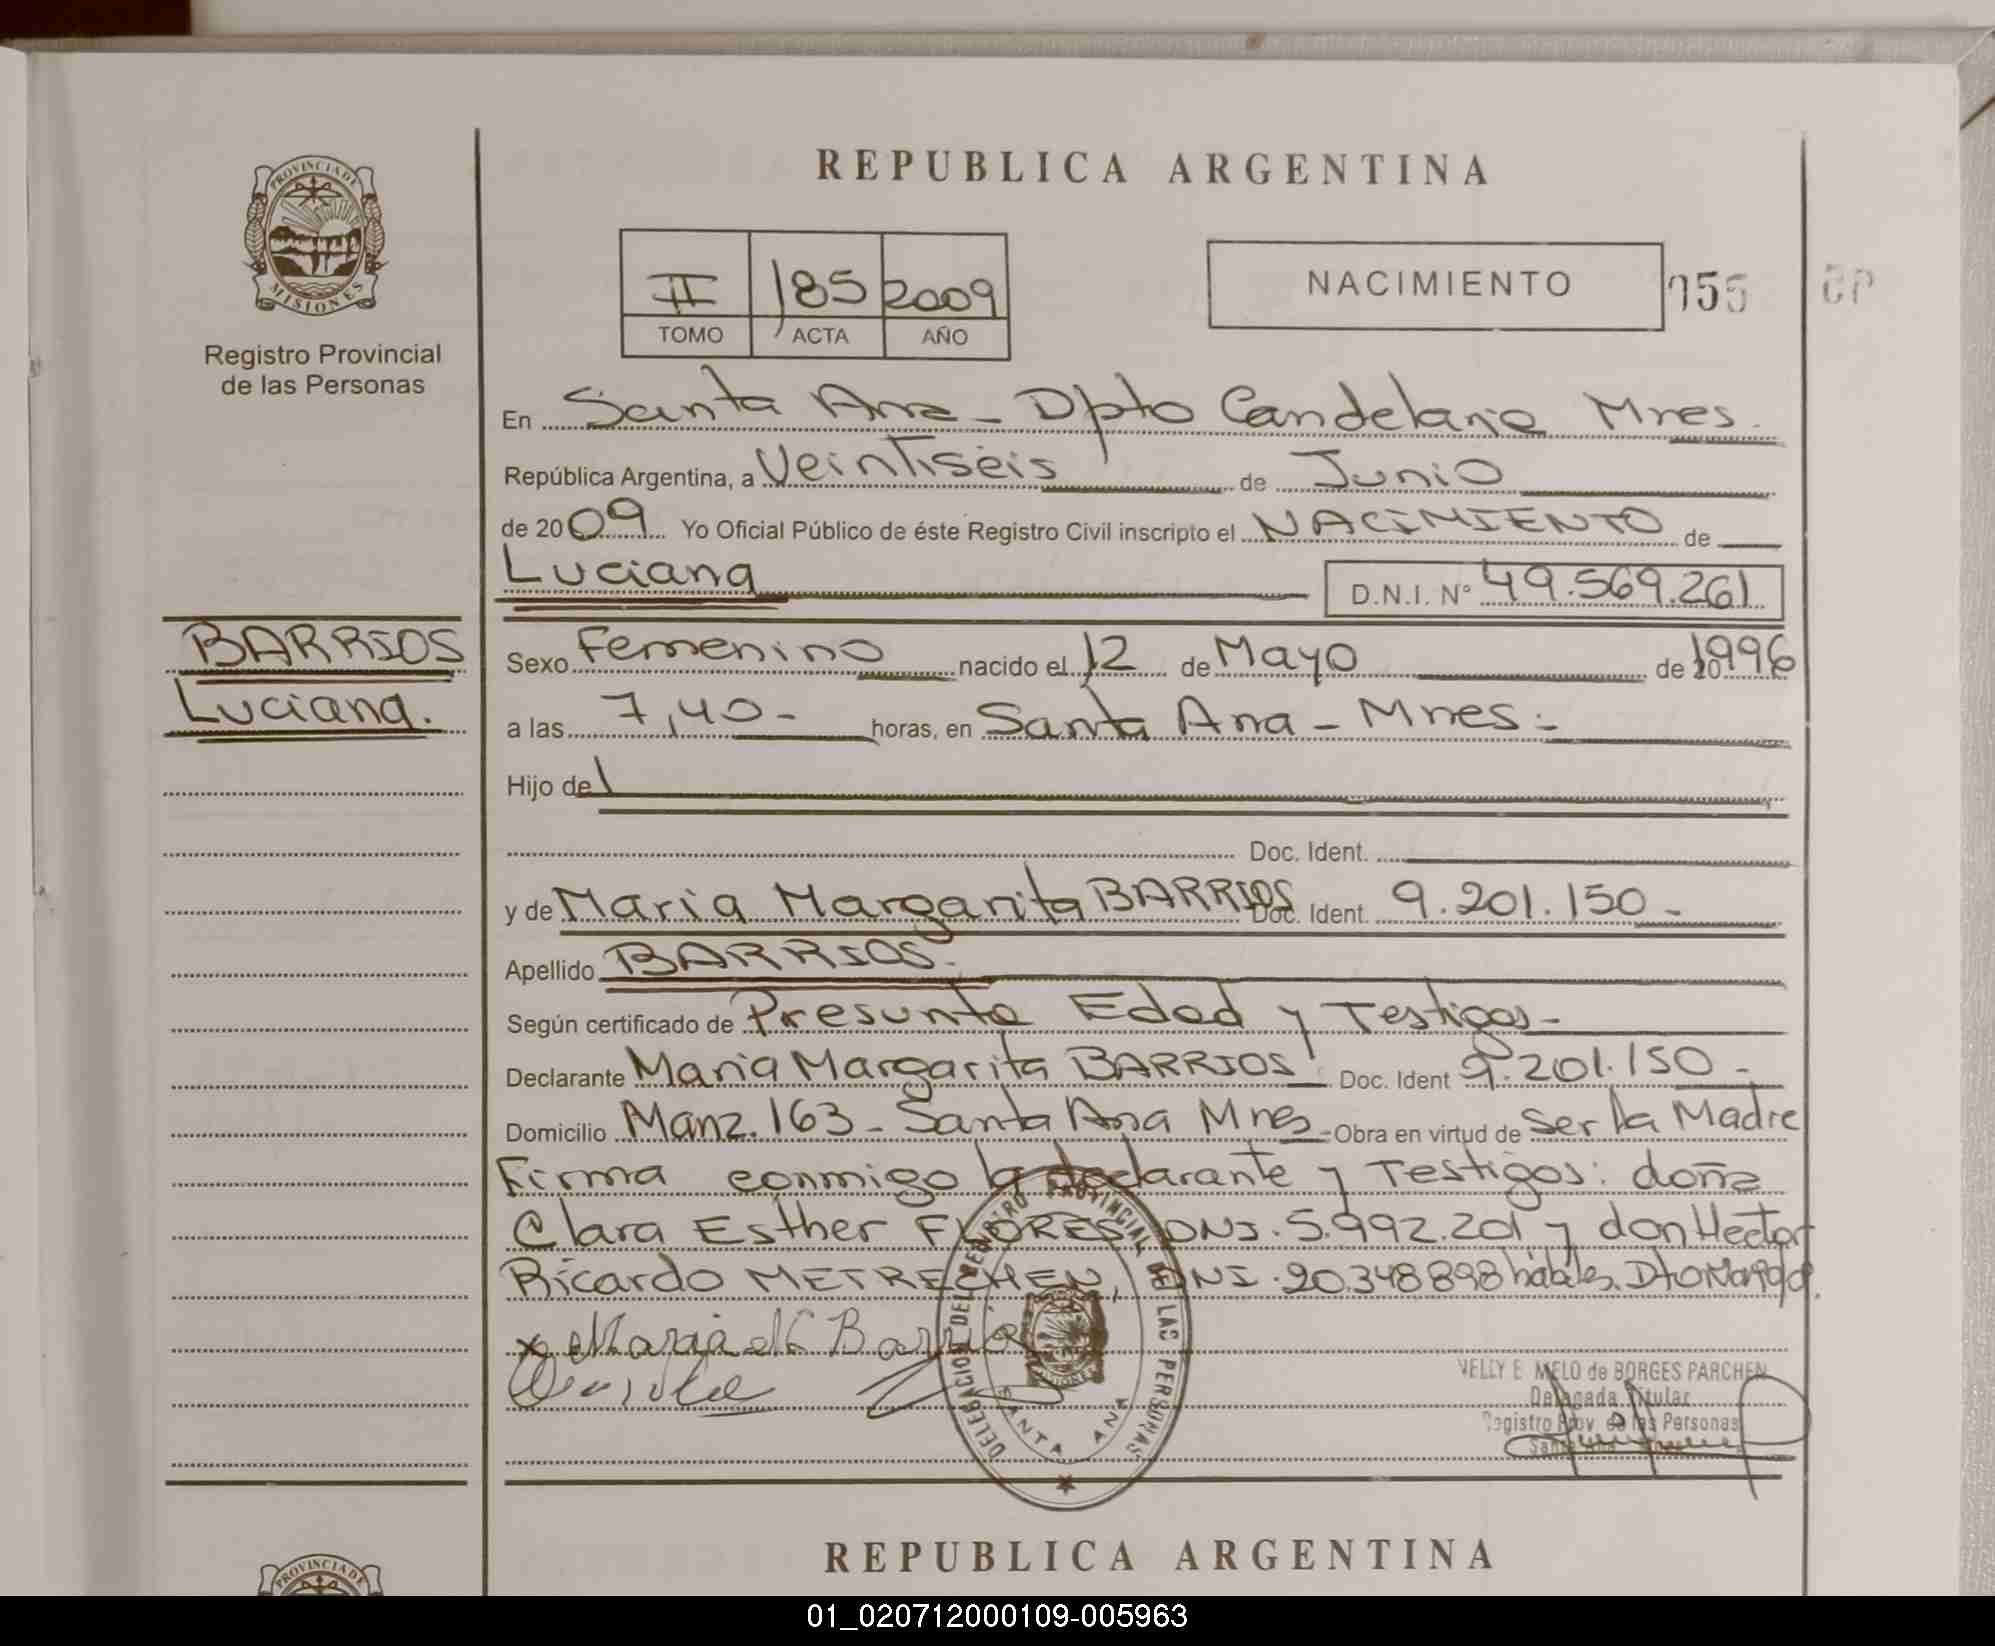 REPUBLICA ARGENTINA
PROVINCIA DE MISIONES
Registro Provincial
de las Personas
II 185 2009
TOMO ACTA AÑO
NACIMIENTO
155
En Santa Ana - Dpto Candelaria Mnes.
República Argentina, a Veintiséis de Junio
de 2009 Yo Oficial Público de éste Registro Civil inscripto el NACIMIENTO de
Luciana D.N.I. Nº 49.569.261
BARRIOS
Luciana.
Sexo Femenino nacido el 12 de Mayo de 1996
a las 7,40- horas, en Santa Ana - Mnes-
Hijo de
Doc. Ident.
y de Maria Margarita BARRIOS Doc. Ident. 9.201.150-
Apellido BARRIOS.
Según certificado de Presunta Edad y Testigos-
Declarante Maria Margarita BARRIOS Doc. Ident 9.201.150-
Domicilio Manz. 163 - Santa Ana Mnes - Obra en virtud de ser la Madre
Firma conmigo la declarante y Testigos: doña
Clara Esther FLORES, DNI. 5.992.201 y don Hector
Ricardo METRECHEN, DNI. 20.348898 hábiles.
x Maria M Barrio
DELEGACION DEL REGISTRO PROVINCIAL DE LAS PERSONAS
SANTA ANA
NELLY E. MELO de BORGES PARCHEN
Delegada Titular
Registro Prov. de las Personas
REPUBLICA ARGENTINA
PROVINCIA DE
01_020712000109-005963